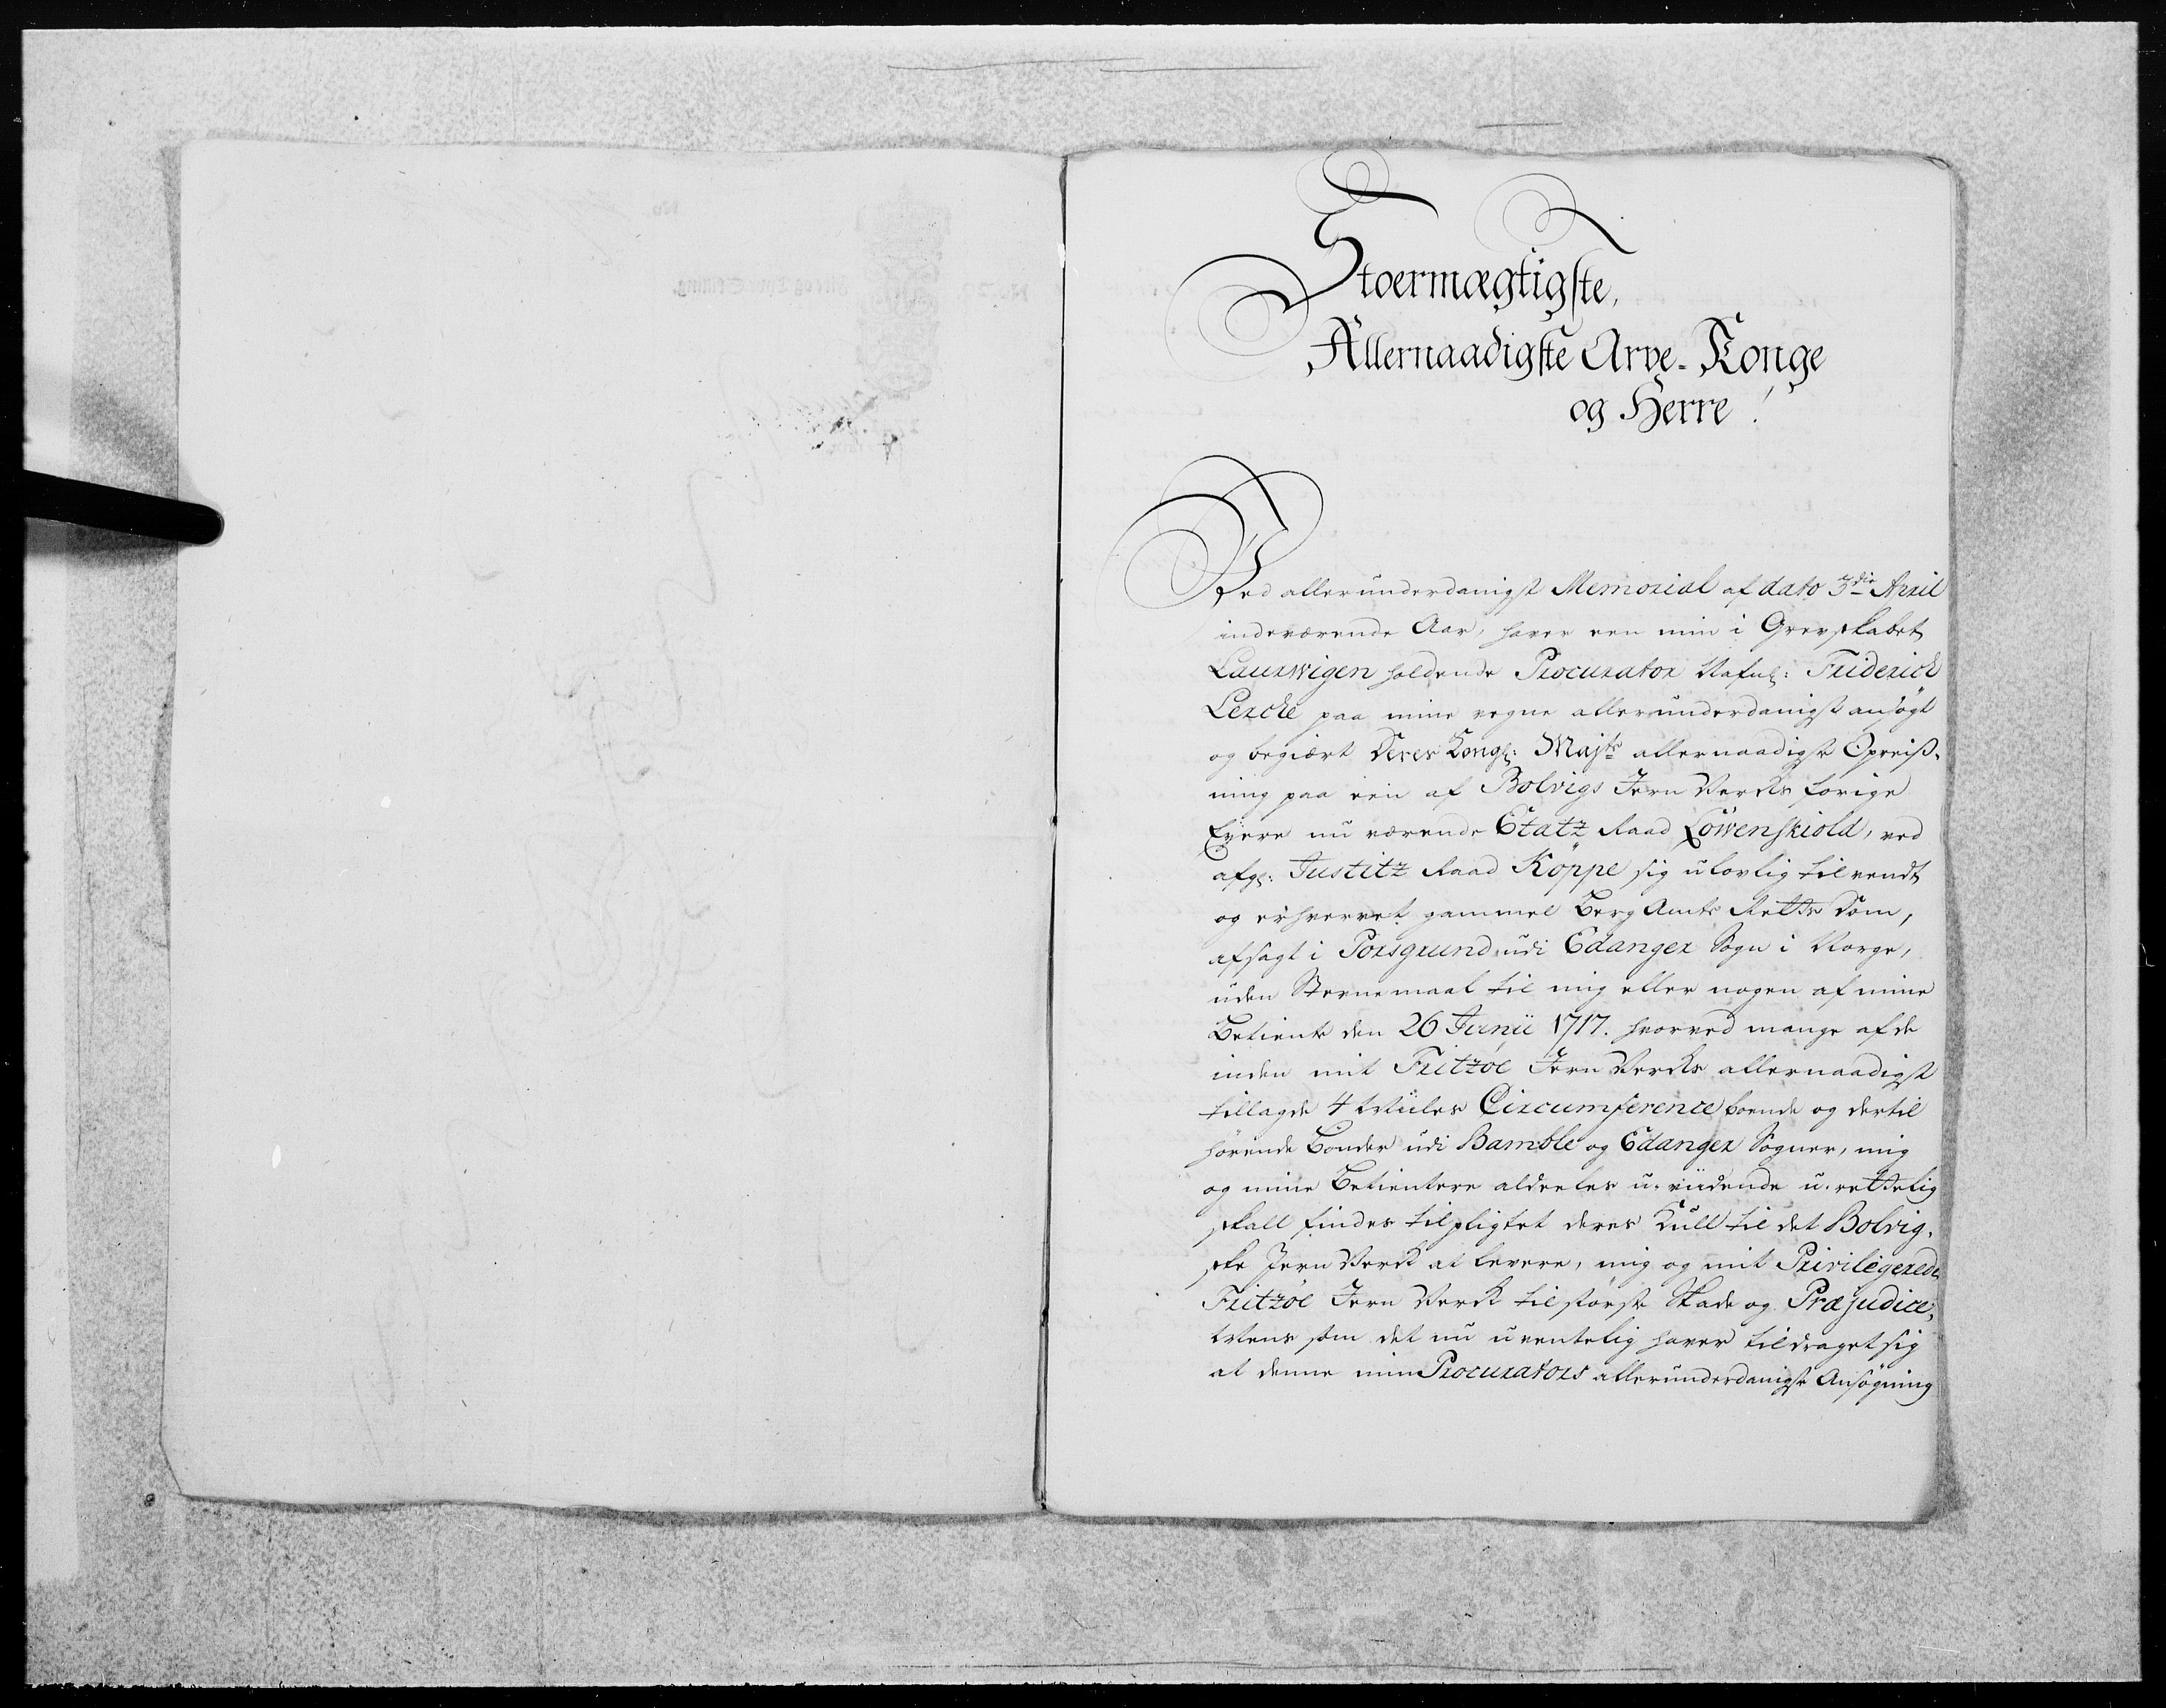 Stoermægtigste,
Allernaadigste Arve-Konge
og Herre!
Ved allerunderdanigst Memorial af dato 3die April
indeværende Aar, haver een min i Grevskabet
Laurwigen holdende Procurator Nafnl: Friderich
Lerche paa mine vegne allerunderdanigst ansøgt
og begiært Deres Kongl: Majts allernaadigste Opreiß-
ning paa een af Bolvigs Jern Verchs forige
Eyere nu værende Etatz Raad Löwenskiold, ved
afgl: Justitz Raad Köppe sig ulovlig tilvendt
og erhvervet gammel Berg Amts Retts Dom,
afsagt i Porsgrund udi Edanger Sogn i Norge,
uden Stevnemaal til mig eller nogen af mine
Betiente den 26 Junii 1717. hvorved mange af de
inden mit Fritzöe Jern Verchs allernaadigst
tillagde 4 Miiles Circumference boende og dertil
hörende Bönder udi Bamble og Edanger Sogner, mig
og mine Betientere aldeeles u-viidende u-rettelig
skall findes tilpligtet deres Kull til det Bolvig-
ske Jern Verck at levere, mig og mit Privilegerede
Fritzöe Jern Verck til störste Skade og Præjudice;
Mens som det nu uventelig haver tildraget sig
at denne min Procurators allerunderdanigste Ansögning